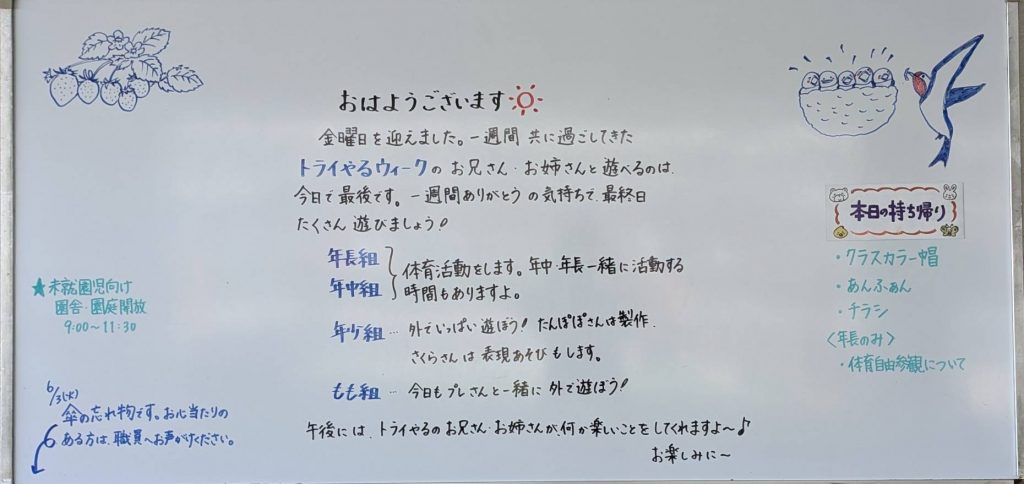 おはようございます
金曜日を迎えました。一週間 共に過ごしてきた
トライやるウィークの お兄さん・お姉さんと 遊べるのは、
今日で最後です。一週間ありがとう の気持ちで、最終日
たくさん 遊びましょう!
年長組
年中組
体育活動をします。年中・年長一緒に活動する
時間もありますよ。
年少組… 外でいっぱい 遊ぼう! たんぽぽさんは製作、
さくらさん は 表現あそび もします。
もも組 … 今日も プレさんと一緒に 外で遊ぼう!
午後には、トライやるのお兄さん・お姉さんが、何か楽しいことをしてくれますよ〜♪
お楽しみに〜
★未就園児向け
園舎・園庭開放
9:00〜11:30
6/3(火)
傘の忘れ物です。お心当たりの
ある方は、職員へお声がけください。
本日の持ち帰り
・クラスカラー帽
・あんふぁん
・チラシ
〈年長のみ〉
・体育自由参観について